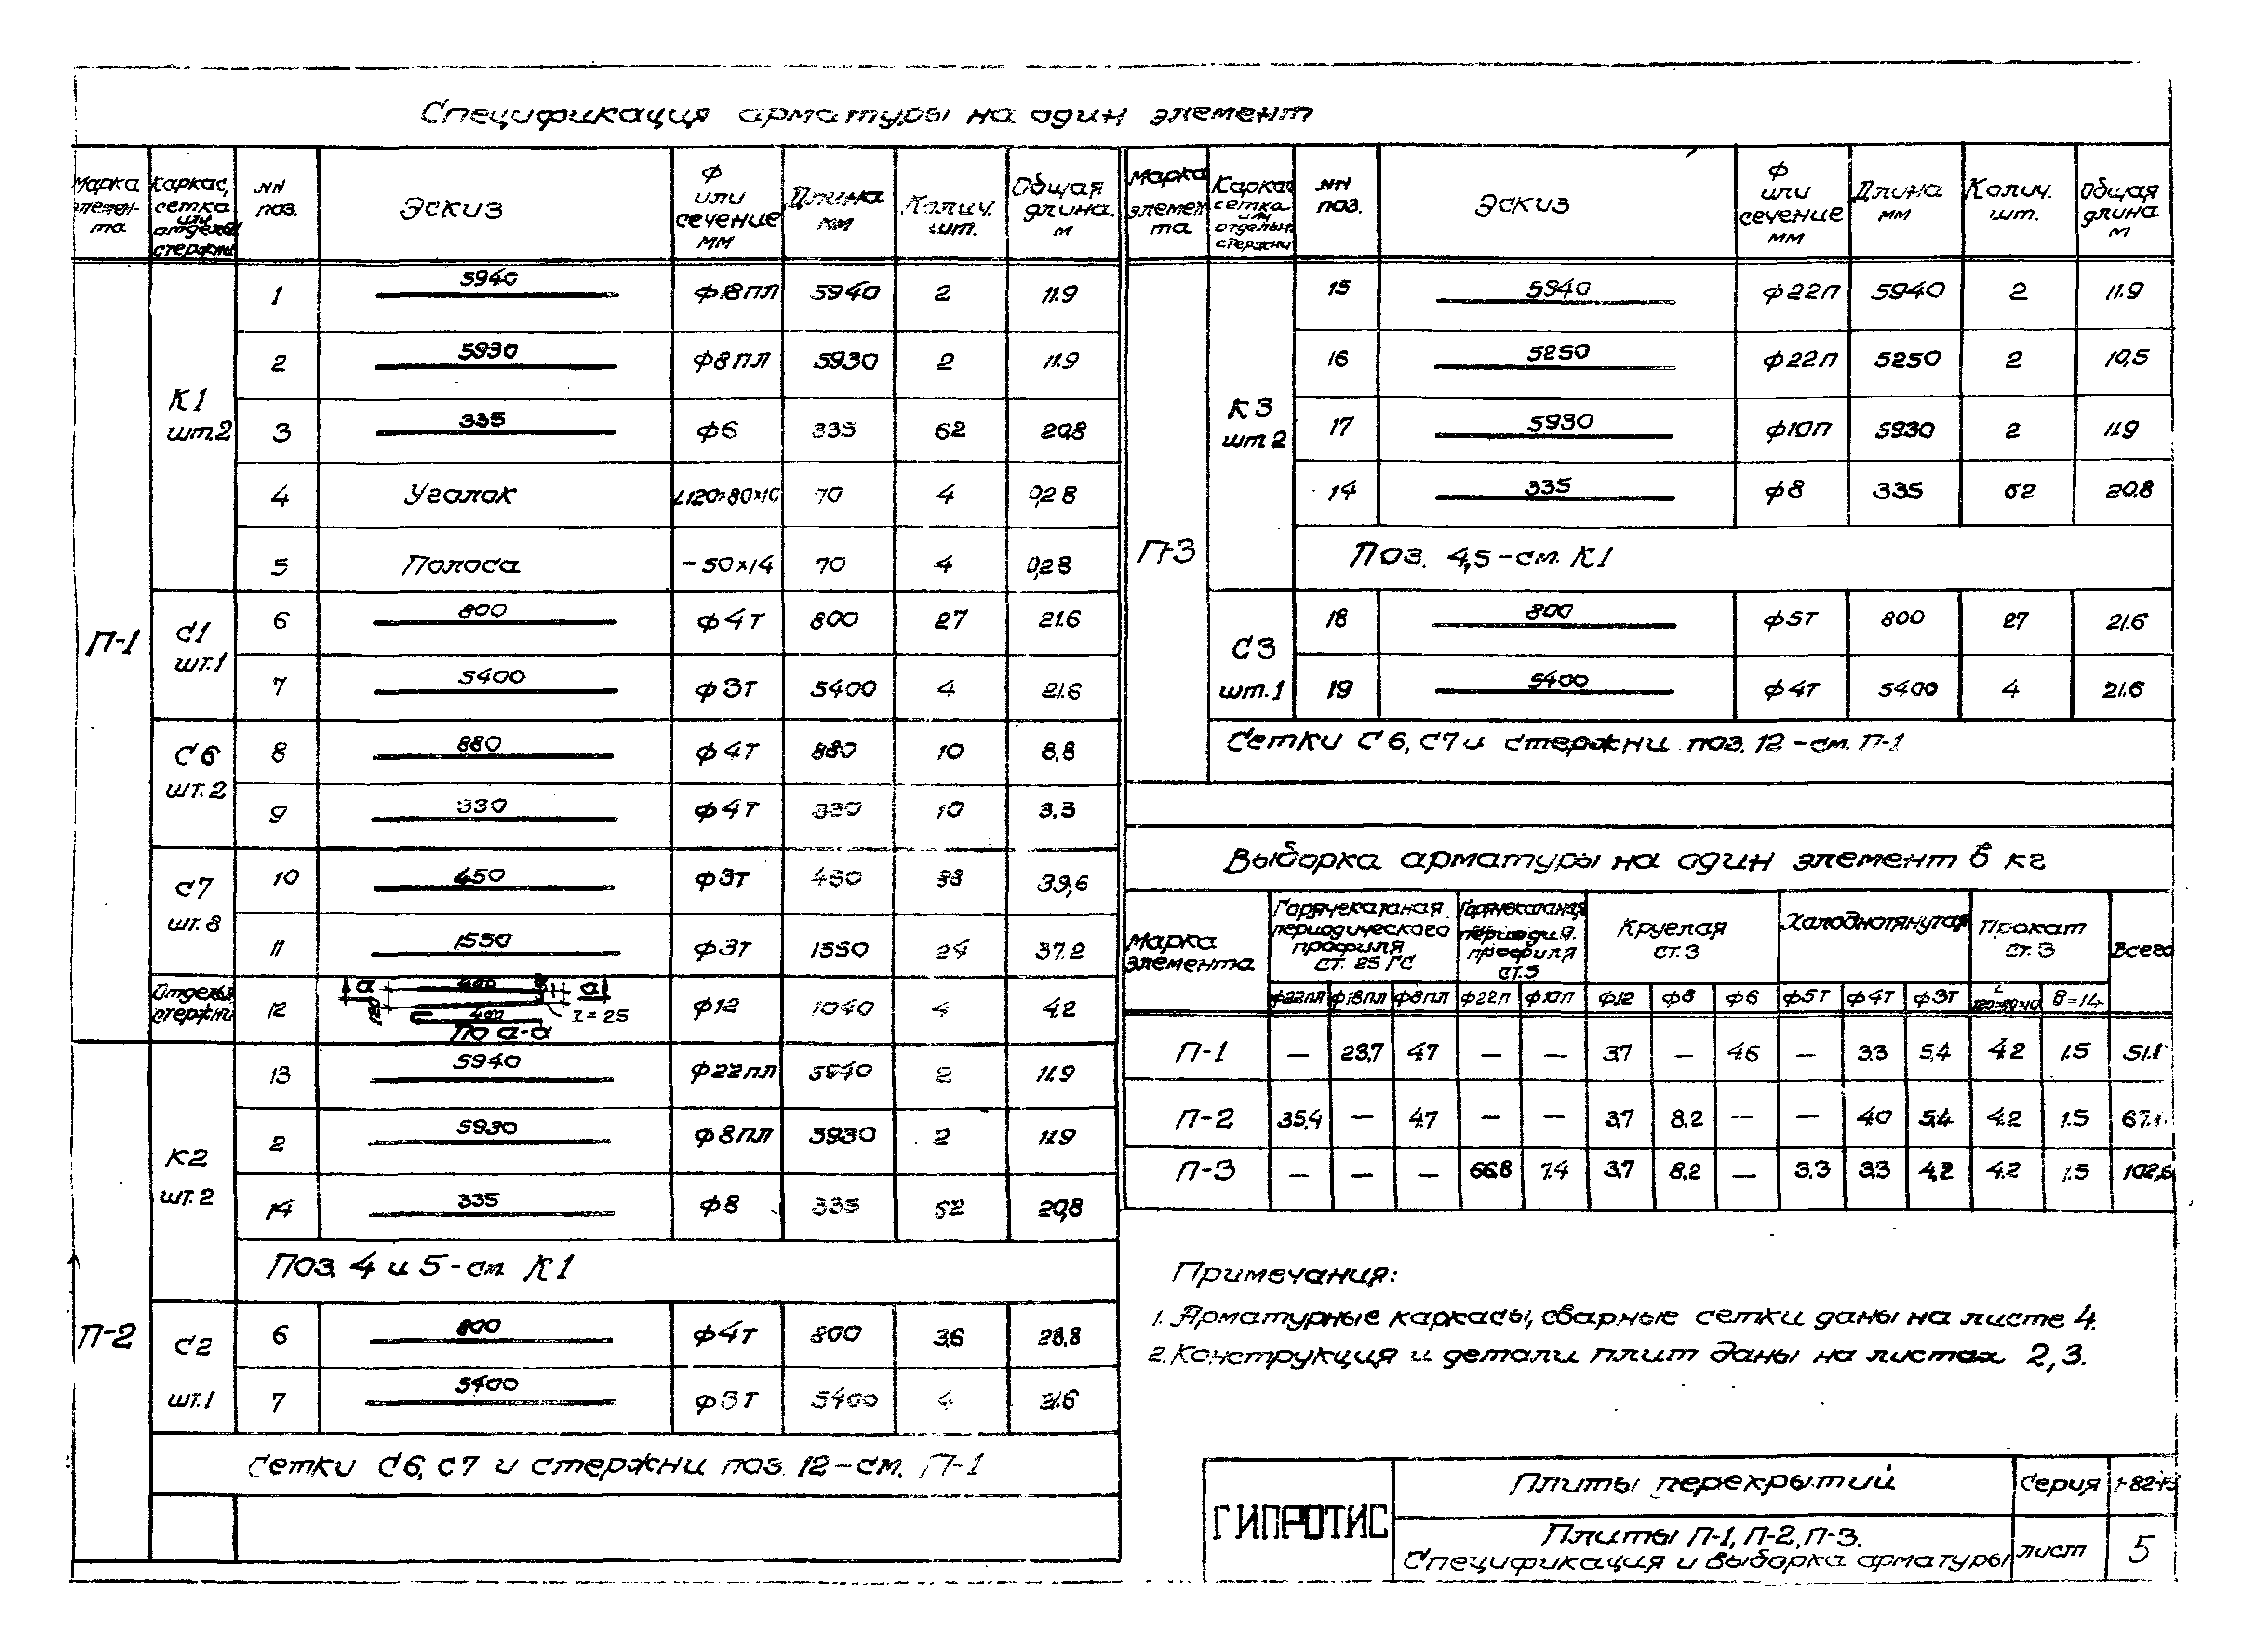 Спецификация арматуры на один элемент
Марка элемен-та | Каркас, сетка или отдельн. стержни | NN поз. | Эскиз | Ф или сечение мм | Длина мм | Колич. шт. | Общая длина м
П-1
К1 шт.2
1 | 5940 | ф18пл | 5940 | 2 | 11.9
2 | 5930 | ф8пл | 5930 | 2 | 11.9
3 | 335 | ф6 | 335 | 62 | 20,8
4 | Уголок | L120×80×10 | 70 | 4 | 0,28
5 | Полоса | -50×14 | 70 | 4 | 0,28
С1 шт.1
6 | 800 | ф4т | 800 | 27 | 21.6
7 | 5400 | ф3т | 5400 | 4 | 21.6
С6 шт.2
8 | 880 | ф4т | 880 | 10 | 8,8
9 | 330 | ф4т | 330 | 10 | 3,3
С7 шт.8
10 | 450 | ф3т | 450 | 88 | 39,6
11 | 1550 | ф3т | 1550 | 24 | 37.2
Отдельн. стержни
12 | а | 400 | а | 400 | г=25 | По а-а | ф12 | 1040 | 4 | 4.2
П-2
К2 шт.2
13 | 5940 | ф22пл | 5940 | 2 | 11.9
2 | 5930 | ф8пл | 5930 | 2 | 11.9
14 | 335 | ф8 | 335 | 62 | 20,8
Поз. 4 и 5-см. К1
С2 шт.1
6 | 800 | ф4т | 800 | 36 | 28,8
7 | 5400 | ф3т | 5400 | 4 | 21.6
Сетки С6, С7 и стержни поз. 12-см. П-1
Марка элемен та | Каркас сетка или отдельн. стержни | NN поз. | Эскиз | Ф или сечение мм | Длина мм | Колич. шт. | Общая длина м
П-3
К3 шт 2
15 | 5940 | ф22п | 5940 | 2 | 11.9
16 | 5250 | ф22п | 5250 | 2 | 10,5
17 | 5930 | ф10п | 5930 | 2 | 11.9
14 | 335 | ф8 | 335 | 62 | 20.8
Поз. 4,5-см. К1
С3 шт.1
18 | 800 | ф5т | 800 | 27 | 21.6
19 | 5400 | ф4т | 5400 | 4 | 21.6
Сетки С6, С7 и стержни поз. 12-см. П-1
Выборка арматуры на один элемент в кг
Марка элемента | Горячекатаная периодического профиля ст. 25 ГС | Горячекатаная периодич. профиля ст.5 | Круглая ст.3 | Холоднотянутая | Прокат ст. 3 | Всего
ф22пл | ф18пл | ф8пл | ф22п | ф10п | ф12 | ф8 | ф6 | ф5т | ф4т | ф3т | L 120×80×10 | δ=14
П-1 | — | 23,7 | 4.7 | — | — | 3.7 | — | 4.6 | — | 3.3 | 5,4 | 4.2 | 1.5 | 51.1
П-2 | 35,4 | — | 4.7 | — | — | 3,7 | 8,2 | — | — | 4.0 | 5.4 | 4.2 | 1.5 | 67.1
П-3 | — | — | — | 66.8 | 7.4 | 3.7 | 8,2 | — | 3.3 | 3.3 | 4,2 | 4.2 | 1.5 | 102,6
Примечания:
1. Арматурные каркасы, сварные сетки даны на листе 4.
2. Конструкция и детали плит даны на листах 2,3.
ГИПРОТИС
Плиты перекрытий
Серия
Плиты П-1, П-2, П-3.
Спецификация и выборка арматуры
лист 5